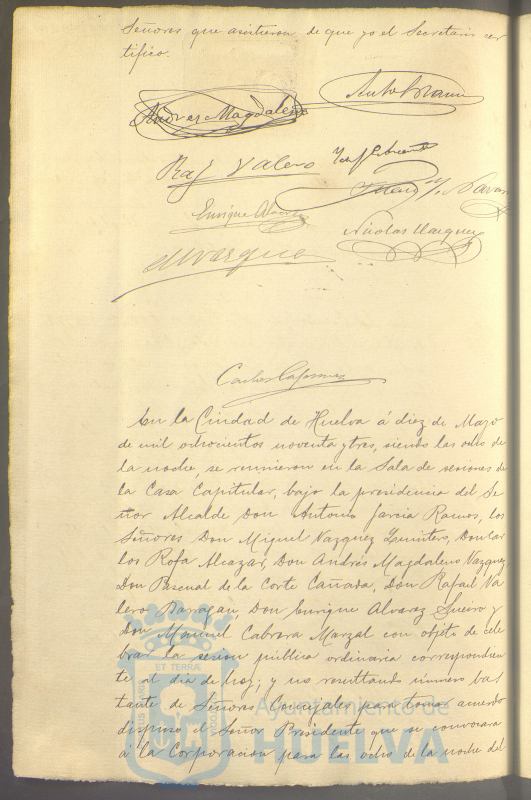 Señores que asistieron, de que yo el Secretario cer
tifico.
Andres Magdaleno
Raf Valero
Enrique Alvarez
Nicolas Vazquez
M Vazquez
Carlos
En la Ciudad de Huelva á diez de Mayo
de mil ochocientos noventa y tres, siendo las ocho de
la noche, se reunieron en la Sala de sesiones de
la Casa Capitular, bajo la presidencia del Se
ñor Alcalde Don Antonio Garcia Ramos, los
Señores Don Miguel Vazquez Quintero, Don Car
los Rofa Alcazar, Don Andrés Magdaleno Vazquez
Don Pascual de la Corte Cañada, Don Rafael Va
lero Barragan, Don Enrique Alvarez Suero y
Don Manuel Cabrera Marzal con objeto de cele
brar la sesion pública ordinaria correspondien
te al dia de hoy; y no resultando número bas
tante de Señores Concejales para tomar acuerdo
dispuso el Señor Presidente que se convocara
á la Corporacion para las ocho de la noche del
ET TERRÆ
Ayuntamiento de
HUELVA